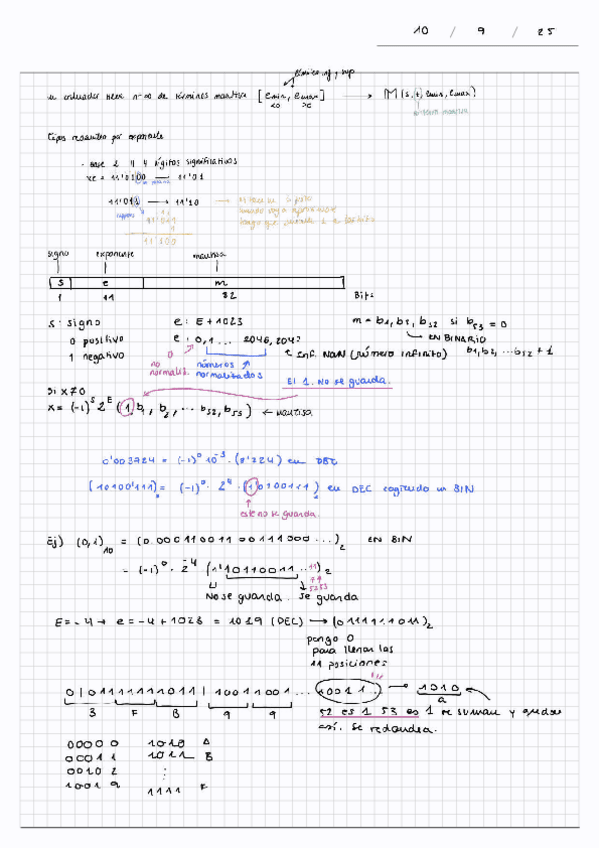 10 / 9 / 25
límite inf y sup
un ordenador tiene nº de términos mantisa [emin, emax] → M(s, t, emin, emax)
<0 >0
dígitos mantisa
por exponente
- base 2 y 4 dígitos significativos
xe = 11'0100 → 11'01
11'011 → 11'10
11'100
signo exponente mantisa
s e m
1 11 52 Bits
s: signo
0 positivo
1 negativo
e: E+1023
e: 0,1... 2046, 2047
0 no normalis.
números normalizados
e inf. NaN (número infinito)
m = b1, b2, b52 si b53 = 0
EN BINARIO
b1, b2, ... b52 + 1
El 1. No se guarda.
Si x≠0
x = (-1)^s 2^E (1, b1, b2, ... b52, b53) ← mantisa
0'003724 = (-1)^0 10^-3 · (3'724) en DEC
(10100'111)2 = (-1)^0 · 2^4 · (1'0100111) en DEC cogiendo un BIN
este no se guarda.
Ej) (0,1)10 = (0.000110011 00111000 ...)2 EN BIN
= (-1)^0 · 2^-4 (1'10110011 ...11)2
52 53
No se guarda. se guarda
E = -4 → e = -4 + 1023 = 1019 (DEC) → (01111111011)2
pongo 0
para llenar las
11 posiciones
0|01111111011|1001 1001 ... 10011... → 1010
3 F B 9 9 a
52 es 1 53 es 1 se suman y quedan
así. Se redondea.
0000 0 1010 A
0001 1 1011 B
0010 2 ⋮
1001 9 1111 F